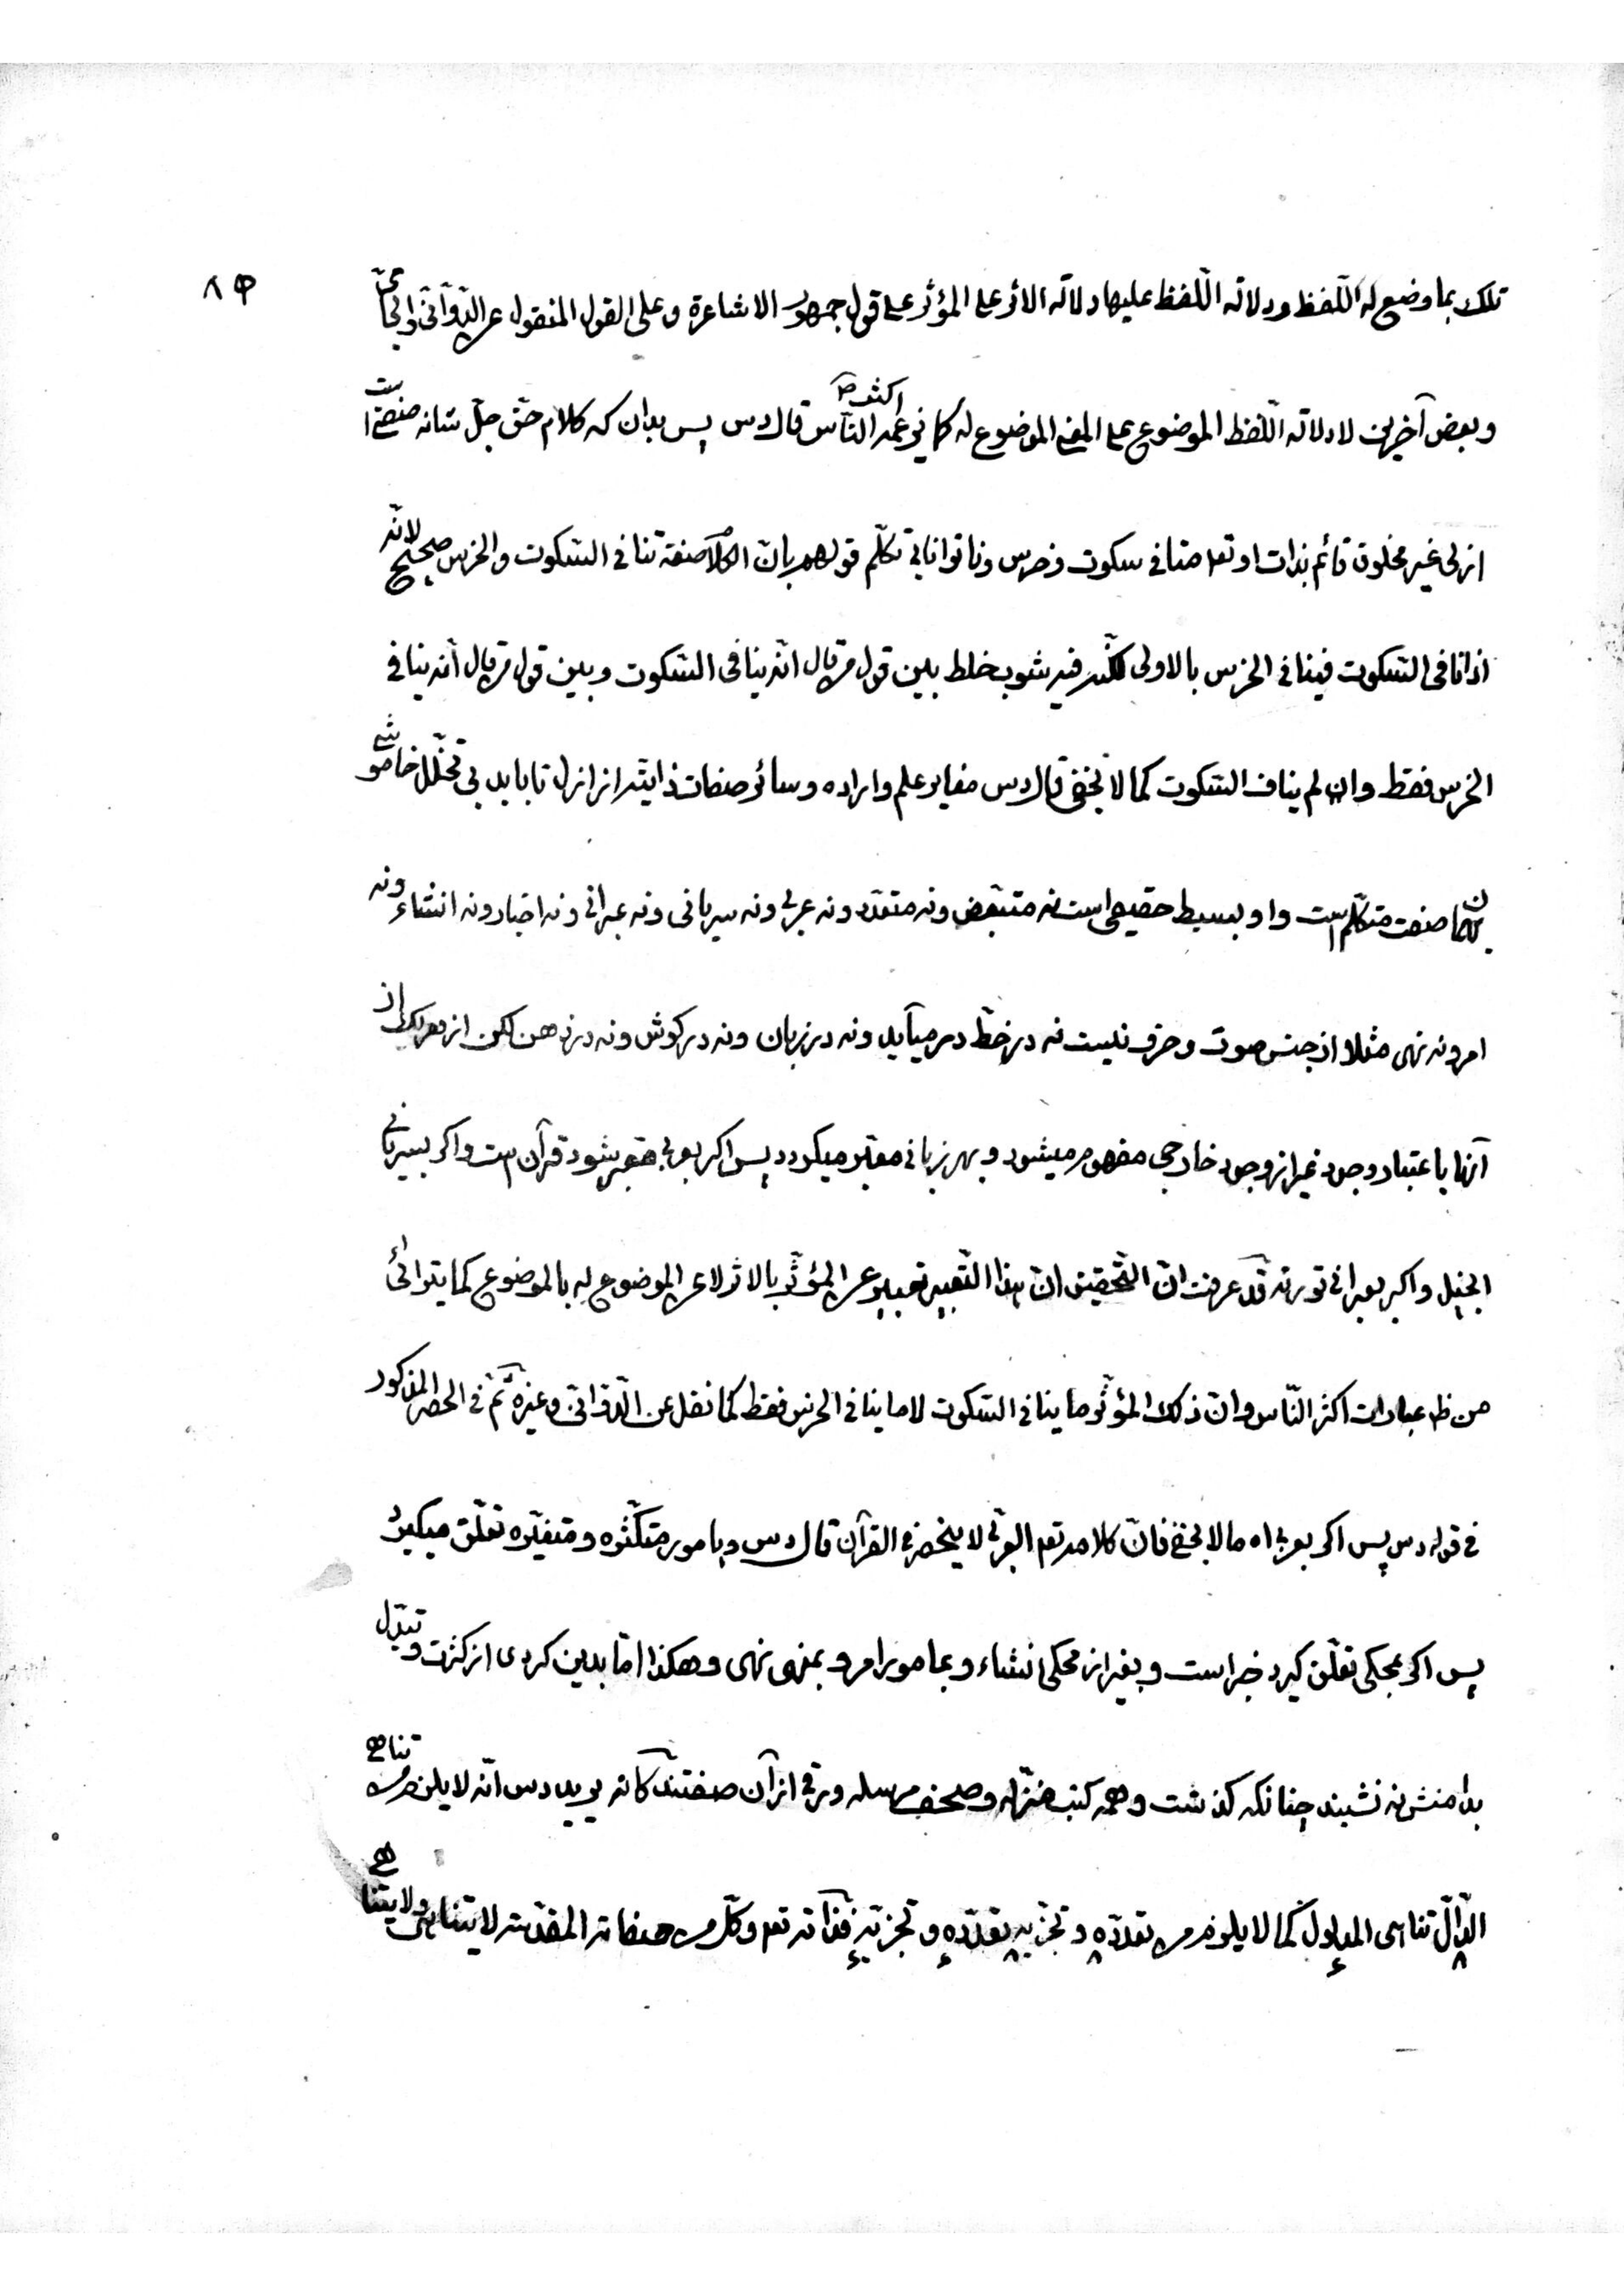 ٨٣
تلك بما وضع له اللّفظ ودلالة اللّفظ عليها دلالة الاثر على المؤثر على قول جمهور الاشاعرة وعلى القول المنقول عن الدّوّانىّ
وبعض آخرين لا دلالة اللّفظ الموضوع على المعنى الموضوع له كما زعمه اكثر النّاس قال دس پس بدان كه كلام حق جلّ شانه صفتى است
ازلى غير مخلوق قائم بذات او تعه منافى سكوت وخرس وناتوانايى تكلّم قولهم بانّ الكلام صفة تنافى السّكوت والخرس صحيح لانّه
اذا نافى السّكوت فينافى الخرس بالاولى لكنّه فيه شوب خلط بين قول من قال انّه ينافى السّكوت وبين قول من قال انّه ينافى
الخرس فقط وان لم يناف السّكوت كما لا يخفى قال دس مغاير علم واراده وسائر صفات ذاتيّه از ازل تا بابد بى تخلّل خاموشى
صفت متكلّم است واو بسيط حقيقى است نه متبعّض ونه متعدّد ونه عربى ونه سريانى ونه عبرانى ونه اخبار ونه انشاء ونه
امر ونه نهى مثلا از جنس صوت وحرف نيست نه در خط در ميآيد ونه در زبان ونه در كوش ونه در ذهن لكن از هر يكى از
آنها باعتبار وجود غير از وجود خارجى مفهوم ميشود وبهر زبانى معبّر ميكردد پس اكر بعربى معبّر شود قرآن است واكر بسريانى
انجيل واكر بعبرانى تورية قد عرفت انّ التّحقيق انّ هذا التّعبير تعبير عن المؤثّر بالاثر لا عن الموضوع له بالموضوع كما يتوائى
من ظ عبارات اكثر النّاس وانّ ذلك المؤثّر ما ينافى السّكوت لا ما ينافى الخرس فقط كما نقل عن الدّوّانىّ وغيره ثمّ فى الحصر المذكور
فى قوله دس پس اكر بعربى اه ما لا يخفى فانّ كلامه تعه العربىّ لا ينحصر فى القرآن قال دس وبامور متكثّره ومتغيّره تعلّق ميكيرد
پس اكر بمحكى تعلّق كيرد خبر است وبغير از محكى انشاء وبمامور امر وبمنهى نهى وهكذا امّا بدين كردى از كثرت وتبدّل
بدامنش نه نشيند چنانكه كذشت وهمه كتب منزله وصحف مرسله ورقى از آن صفتند كانّه يريد دس انّه لا يلزم من تناهى
الدّالّ تناهى المدلول كما لا يلزم من تعدّده وتجزّيه تعدّده وتجزّيه فذاته تعه وكلّ من صفاته المقدّسة لا يتناهى ولا يتناهى